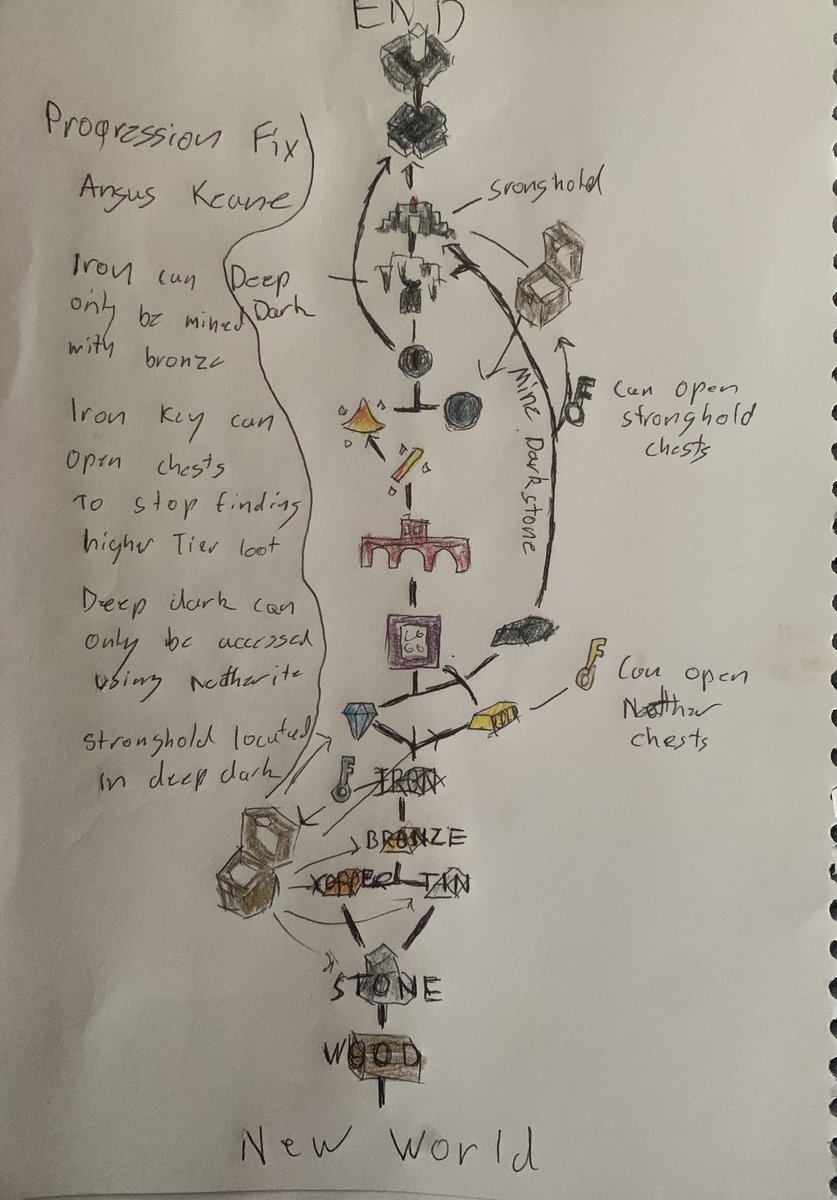 END
Progression Fix
Angus Keane
Sronghold
Iron can
only be mined
with bronze
Deep
Dark
Iron Key can
open chests
To stop finding
higher Tier loot
Can open
stronghold
chests
Mine Darkstone
Deep dark can
only be accessed
using Neetharite
Can open
Neethar
chests
GOLD
stronghold located
in deep dark
IRON
BRONZE
COPPER
TAN
STONE
WOOD
New World